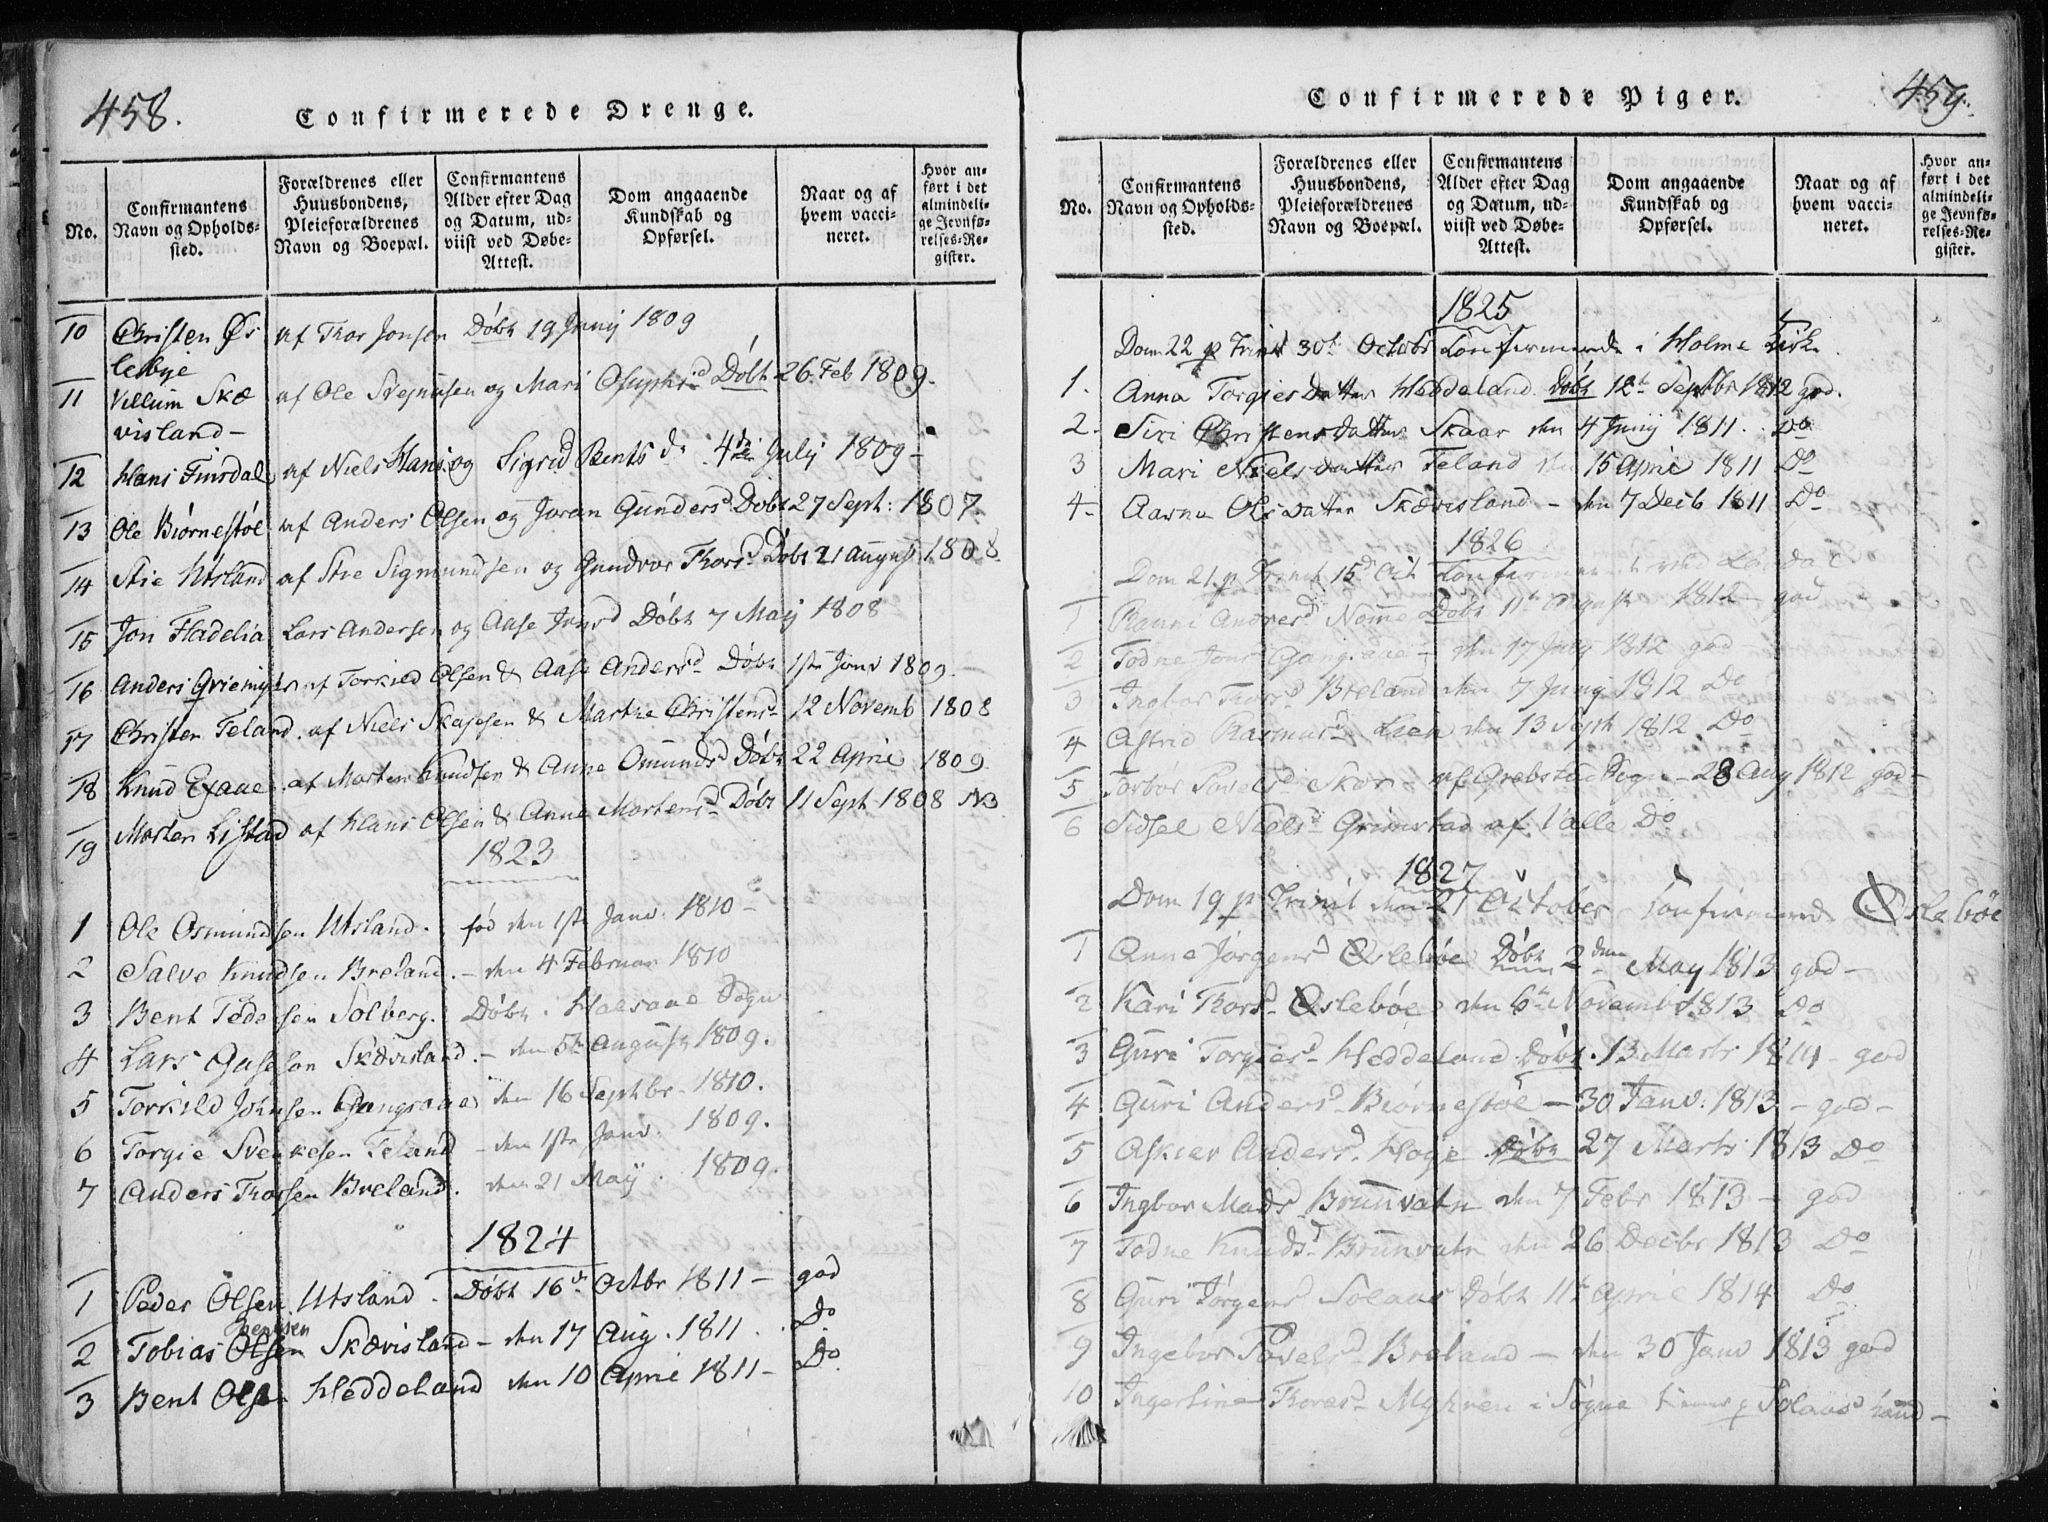 458.
Confirmerede Drenge.
No.
Confirmantens Navn og Opholds-sted.
Forældrenes eller Huusbondens, Pleieforældrenes Navn og Boepæl.
Confirmantens Alder efter Dag og Datum, ud-viist ved Døbe-Attest.
Dom angaaende Kundskab og Opførsel.
Naar og af hvem vacci-neret.
Hvor an-ført i det almindeli-ge Jevnfø-relses-Re-gister.
10 Christen Øs af Thor Jonsen Döbt 19 Junij 1809
lebye
11 Villum Skæ af Ole Svejnusen og Mari Døbt 26. Feb 1809.
visland-
12 Hans Finsdal af Niels Hans. og Sigrid Bents dr 4de Julij 1809-
13 Ole Biørnestøl af Anders Olsen og Joran Gunders d Döbt 27 Sept: 1807
14 Stie Utsland af Stie Sigmundsen og Gundvor Thors d Döbt 21 August 1808
15 Jon Fladelia Lars Andersen og Aase Jons d Döbt 7 Maij 1808
16 Anders Qviemyhr af Torkild Olsen & Aase Anders d Döbt 1ste Janv 1809.
17 Christen Feland. af Niels & Marthe Christens d 12 Novemb 1808
18 Knud Efaae af Morten Knudsen & Anne Omunds d Döbt 22 April 1809
19 Morten Listad af Hans Olsen & Anne Mortens d Döbt 11 Sept 1808 NB
1823
1 Ole Osmundsen Utsland. fød den 1ste Janv. 1810-
2 Salve Knudsen Breland. - den 4 Februar 1810
3 Bent Pedersen Solberg. Döbt i Sogn
4 Lars Skævisland. - den 5te August 1809.
5 Torkild Johnsen Gangsaae den 16 Septbr. 1810.
6 Torgie Svenkesen Feland - den 1ste Janv. 1809.
7 Anders Thorsen Breland. den 21 May. 1809.
1824
1 Peder Olsen Utsland. Döbt 16de Octbr 1811- god
2 Tobias Olsen Skævisland- den 17 Aug. 1811. Do
3 Bent Olsen Heddeland den 10 April 1811- Do
459.
Confirmerede Piger.
No.
Confirmantens Navn og Opholds-sted.
Forældrenes eller Huusbondens, Pleieforældrenes Navn og Boepæl.
Confirmantens Alder efter Dag og Datum, ud-viist ved Døbe-Attest.
Dom angaaende Kundskab og Opførsel.
Naar og af hvem vacci-neret.
Hvor an-ført i det almindeli-ge Jevnfø-relses-Re-gister.
1825
Dom 22 p Trinit 30te Octobr Confirmerede i Holme Kirke
1. Anna TorgiersDatter Heddeland Döbt 12te Septbr 1812 god.
2. Siri ChristensDatter Skaar den 4 Junij 1811. Do
3 Mari NielsDatter Feland den 15 April 1811 Do
4- Aasne OlsDatter Skævisland - den 7 Decb 1811 Do
1826
Dom 21. p Trinit 15d Oct
1 Anders d Nome Döbt 11te August 1812- god
2 Todne Jons Gangsaae - den 17 1812 god
3 Ingbor Thors d Breland den 7 Junij 1812 Do
4 Astrid Rasmus d Lien den 13 Sept 1812. Do
5 Torbor Povels d af Sogn - 28 Aug 1812 god-
6 Sidsel Niels d Grimstad af Valle Do
1827
Dom 19 p Trinit den 21 October Confirmered Øslebøe
1 Anne Jørgens d Øslebøe Döbt 2den May 1813 god-
2 Kari Thors d Øslebøe den 6te Novembr 1813 Do
3 Guri Torgiers d Heddeland Döbt. 13 Marts 1811- god
4 Guri Anders d Biørnestøl - 30 Janv: 1813 - god-
5 Askier Anders d. Høye Döbt 27 Marts 1813 Do
6 Ingbor Mads d Brunvatn den 7 Febr 1813 - god
7 Todne Knuds d Brunvatn den 26 Decbr 1813 Do
8 Guri Jørgens d Solaas Döbt 11te April 1814 Do
9 Ingebor Povels d Breland - den 30 Janv 1813 god
10 Thores d Myhren i Søgne Solaas